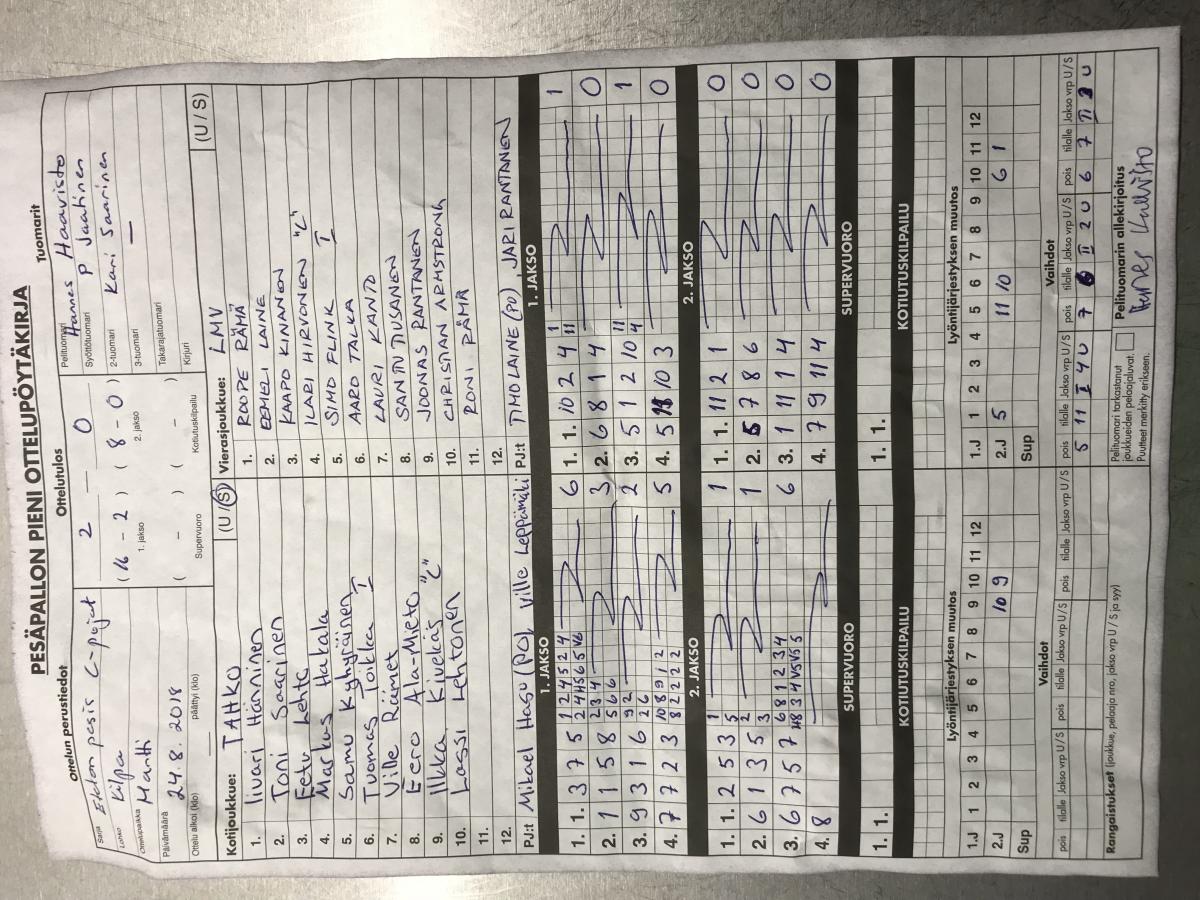 PESÄPALLON PIENI OTTELUPÖYTÄKIRJA
Ottelun perustiedot
Sarja Ekton pesis C-pojat
Lohko Kilpa
Ottelupaikka Martti
Päivämäärä 24.8.2018
Ottelu alkoi (klo) päättyi (klo)
Ottelutulos
2 — 0
(16 - 2) (8 - 0)
1. jakso 2. jakso
( - ) ( - )
Supervuoro Kotiutuskilpailu
Tuomarit
Pelituomari Hannes Haavisto
Syöttötuomari P Jaatinen
2-tuomari Kari Saarinen
3-tuomari —
Takarajatuomari
Kirjuri
Kotijoukkue: TAHKO (U/S)
1. Iivari Hänninen
2. Toni Saarinen
3. Eetu Lehto
4. Markus Hakala
5. Samu Kyhyräinen
6. Tuomas Toikka I
7. Ville Räämet
8. Eero Ala-Mieto
9. Ilkka Kivekäs "C"
10. Lassi Lehtonen
11.
12.
PJ:t Mikael Hasu (PO), Ville Leppämäki
Vierasjoukkue: LMV (U / S)
1. ROOPE RÄMÄ
2. EEMELI LAINE
3. KAAPO KINANEN
4. ILARI HIRVONEN "C"
5. SIMO FLINK I
6. AARO TALKA
7. LAURI KANTO
8. SANTTU TIUSANEN
9. JOONAS RANTANEN
10. CHRISTIAN ARMSTRONG
11. RONI RÄMÄ
12.
PJ:t TIMO LAINE (PO) JARI RANTANEN
1. JAKSO
1. 1. 3 7 5 6
2. 1 1 5 8 3
3. 9 3 1 6 2
4. 7 7 2 3 5
1. JAKSO
1. 1. 10 2 4 1
2. 6 8 1 4 0
3. 5 1 2 10 1
4. 5 10 3 0
2. JAKSO
1. 1. 2 5 3 1
2. 6 1 3 5 1
3. 6 7 5 7 6
4. 8
2. JAKSO
1. 1. 11 2 1 0
2. 5 7 8 6 0
3. 1 11 1 4 0
4. 7 9 11 4 0
SUPERVUORO
1. 1.
SUPERVUORO
1. 1.
KOTIUTUSKILPAILU
KOTIUTUSKILPAILU
Lyöntijärjestyksen muutos
1.J 1 2 3 4 5 6 7 8 9 10 11 12
2.J 10 9
Sup
Lyöntijärjestyksen muutos
1.J 1 2 3 4 5 6 7 8 9 10 11 12
2.J 5 11 10 6 1
Sup
Vaihdot
pois tilalle Jakso vrp U/S pois tilalle Jakso vrp U/S pois tilalle Jakso vrp U/S
Vaihdot
pois tilalle Jakso vrp U/S pois tilalle Jakso vrp U/S pois tilalle Jakso vrp U/S
5 11 I 4 U 7 6 II 2 U 6 7 II 3 U
Rangaistukset (joukkue, pelaaja nro, jakso vrp, U / S ja syy)
Pelituomari tarkastanut joukkueiden pelaajaluvat.
Puutteet merkitty erikseen.
Pelituomarin allekirjoitus